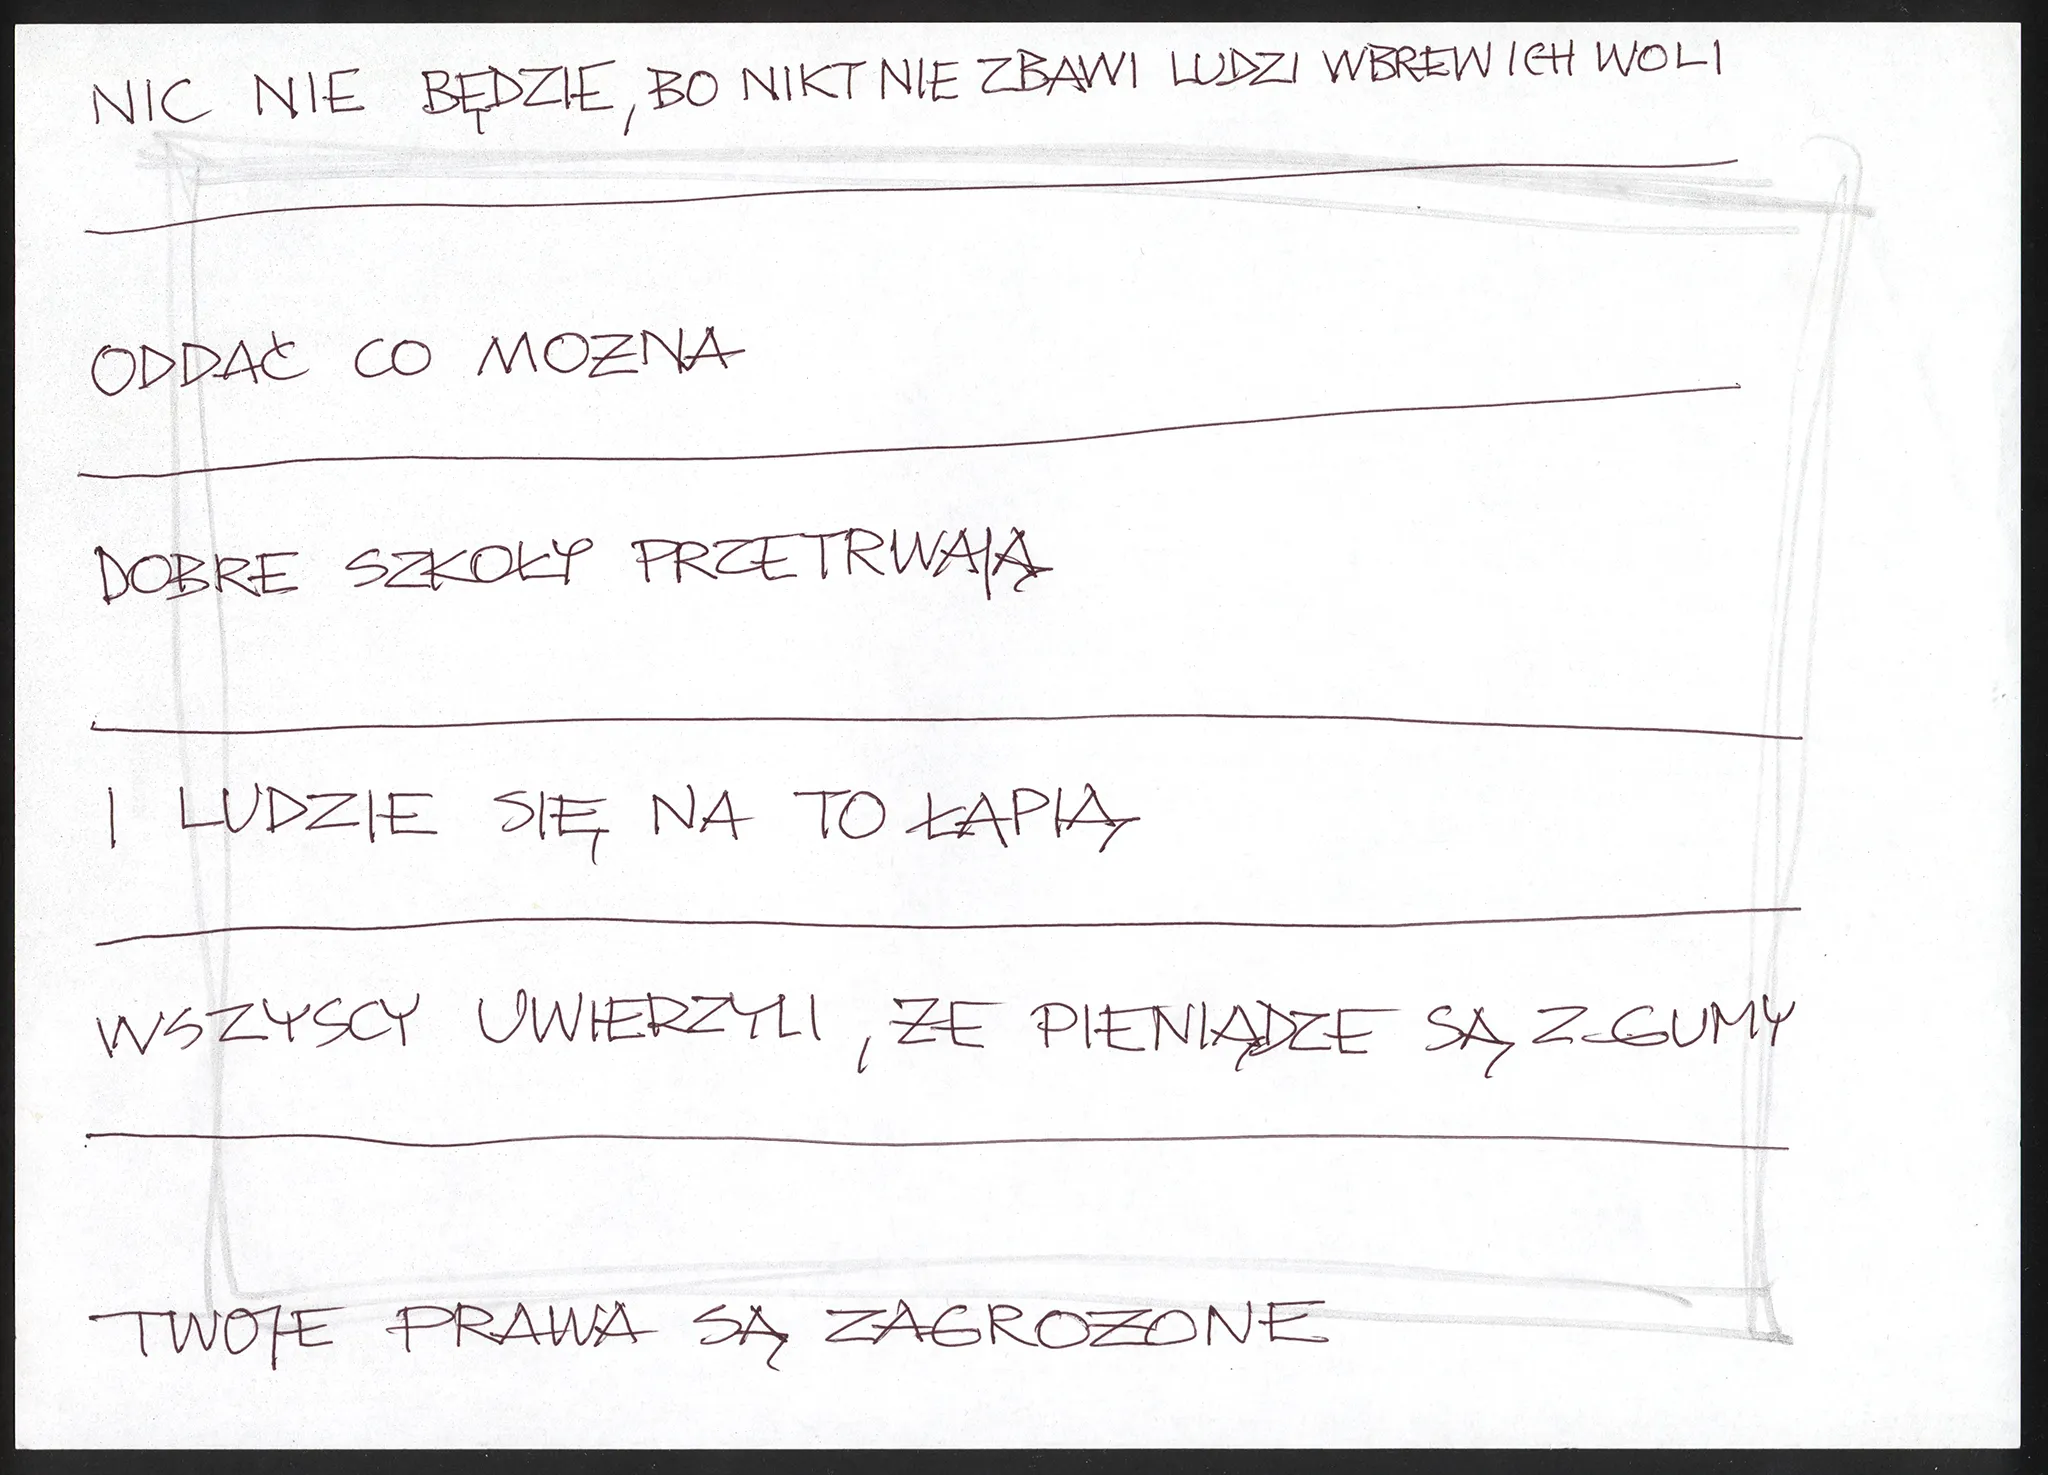 NIC NIE BĘDZIE, BO NIKT NIE ZBAWI LUDZI WBREW ICH WOLI
ODDAĆ CO MOZNA
DOBRE SZKOŁY PRZETRWAJĄ
I LUDZIE SIĘ NA TO ŁAPIĄ
WSZYSCY UWIERZYLI, ZE PIENIĄDZE SĄ Z GUMY
TWOJE PRAWA SĄ ZAGROZONE